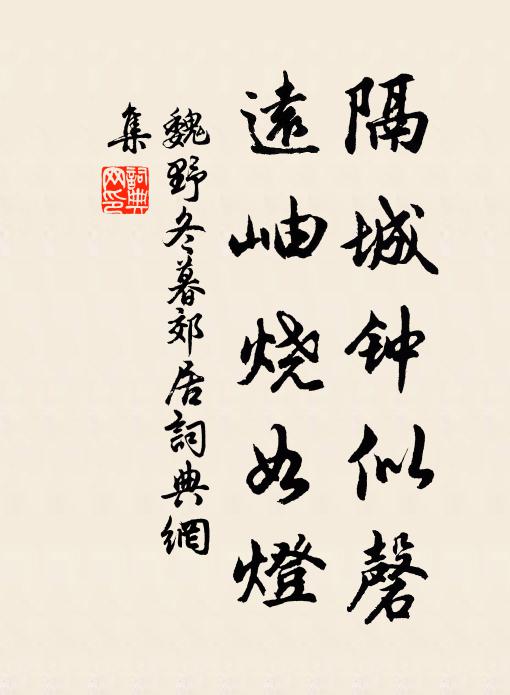 隔城钟似磬
遠岫烧如燈
魏野冬暮郊居詞典網
集
詞典网印